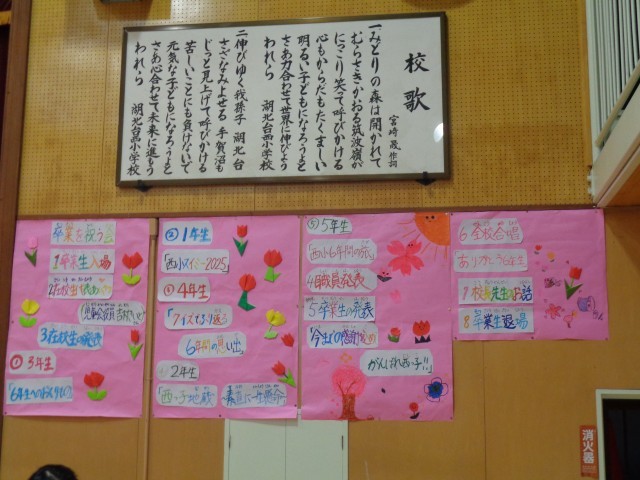 校歌
宮崎茂作詞
一みどりの森は開かれて
むらさきかおる筑波嶺が
にっこり笑って呼びかける
心もからだもたくましい
明るい子どもになろうよと
さあ力合わせて世界に伸びよう
われら 湖北台西小学校
二伸びゆく我孫子 湖北台
さざなみよせる 手賀沼も
じっと見上げて呼びかける
苦しいことにも負けないで
元気な子どもになろうよと
さあ心合わせて未来に進もう
われら 湖北台西小学校
卒業を祝う会
1卒業生入場
2在校生代表あいさつ
3在校生の発表
①3年生
②1年生
「西小スイミー2025」
③4年生
「クイズでふり返ろう
6年間の思い出」
2年生
⑤5年生
「西小6年間の旅」
4職員発表
5卒業生の発表
「今までの感謝を込め
がんばれ西っ子!!」
6全校合唱
ありがとう6年生
7校長先生のお話
8卒業生退場
消火器